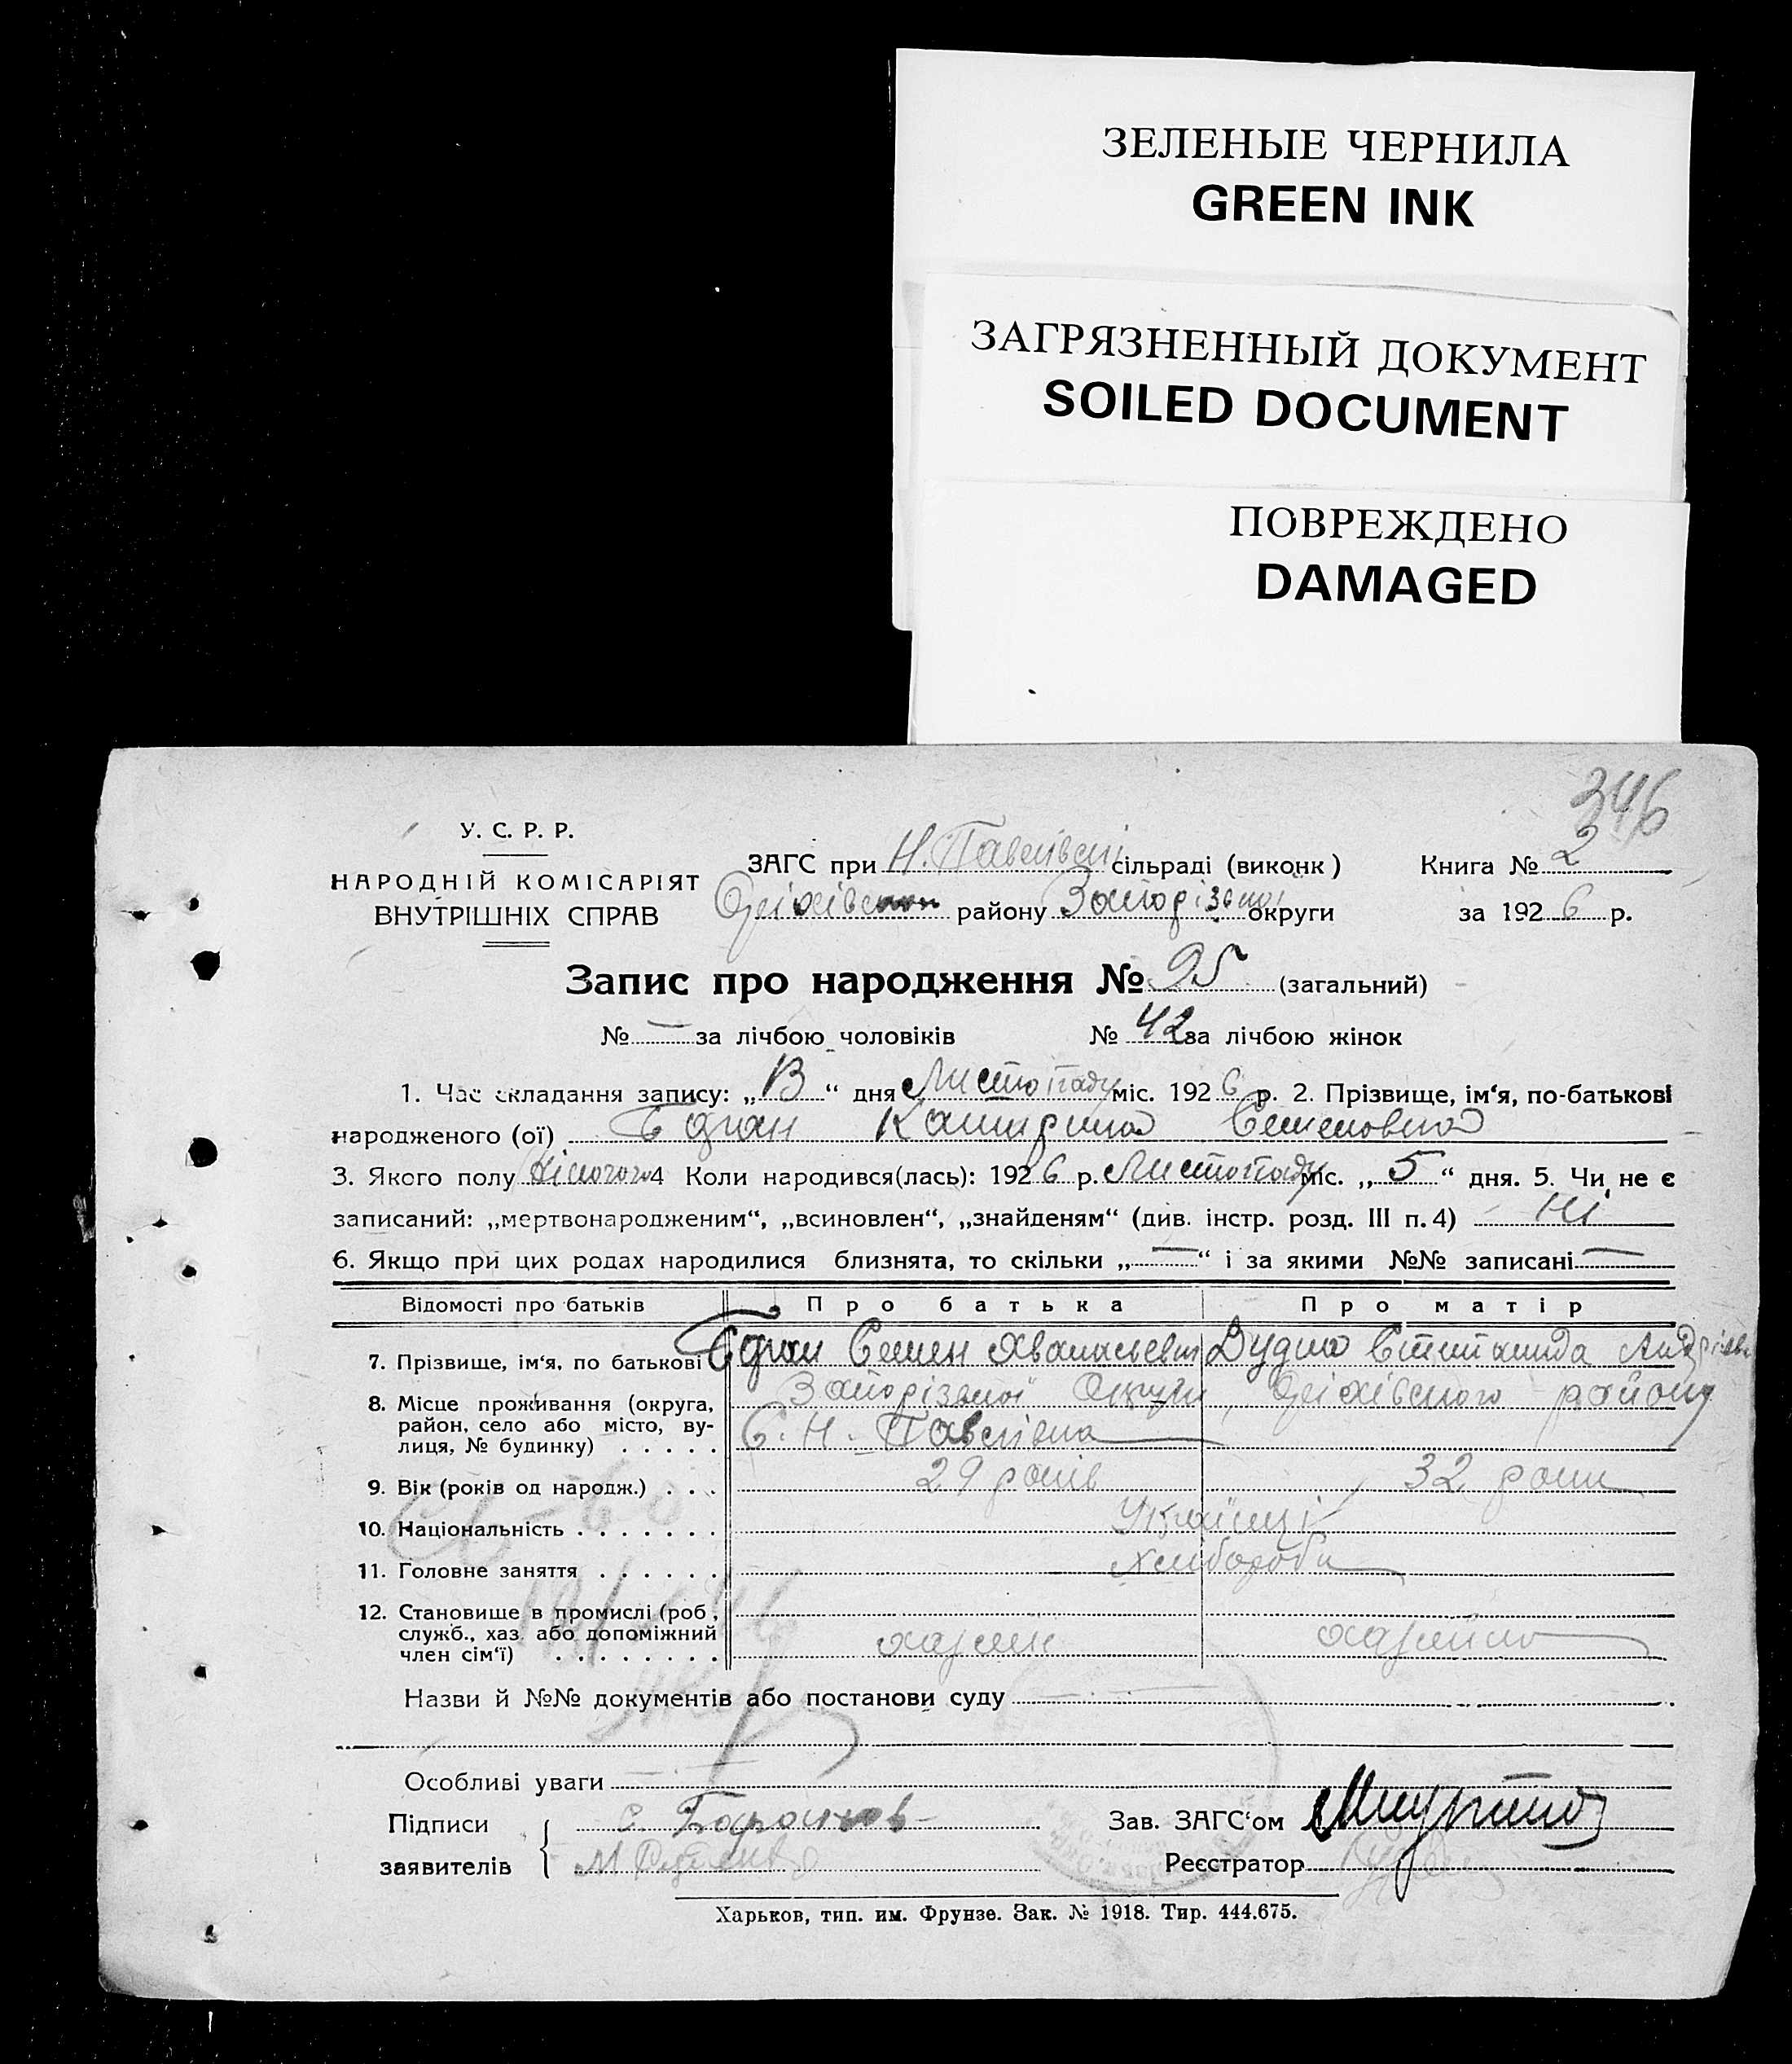 ЗЕЛЕНЫЕ ЧЕРНИЛА
GREEN INK
ЗАГРЯЗНЕННЫЙ ДОКУМЕНТ
SOILED DOCUMENT
ПОВРЕЖДЕНО
DAMAGED
346
У. С. Р. Р.
НАРОДНІЙ КОМІСАРІЯТ
ВНУТРІШНІХ СПРАВ
ЗАГС при Н. Павлівські сільраді (виконк) Книга № 2
Оріхівськ району Запорізької округи за 1926 р.
Запис про народження № 95 (загальний)
№ — за лічбою чоловіків № 42 за лічбою жінок
1. Час складання запису: „ “ дня Листопаду міс. 1926 р. 2. Прізвище, ім‘я, по-батькові
народженого (ої) Катерина Семеновна
3. Якого полу жіночого 4 Коли народився(лась): 1926 р. Листопаду міс. „5“ дня. 5. Чи не є
записаний: „мертвонародженим“, „всиновлен“, „знайденям“ (див. інстр. розд. III п. 4) Ні
6. Якщо при цих родах народилися близнята, то скільки „—“ і за якими №№ записані —
Відомості про батьків Про батька Про матір
7. Прізвище, ім‘я, по батькові Семен Дудка Андрієв
8. Місце проживання (округа, Запорізької Округи, Оріхівського району
район, село або місто, ву- С. Н. Павлівка
лиця, № будинку) . . . . .
9. Вік (років од народж.) . . . 29 років 32 роки
10. Національність . . . . . . . Українці
11. Головне заняття . . . . . . Хлібороби
12. Становище в промислі (роб,
служб., хаз. або допоміжний хазяїн хазяйка
член сім‘ї) . . . . . . . .
Назви й №№ документів або постанови суду
Особливі уваги
Підписи Зав. ЗАГС‘ом
заявителів Реєстратор
Харьков, тип. им. Фрунзе. Зак. № 1918. Тир. 444.675.